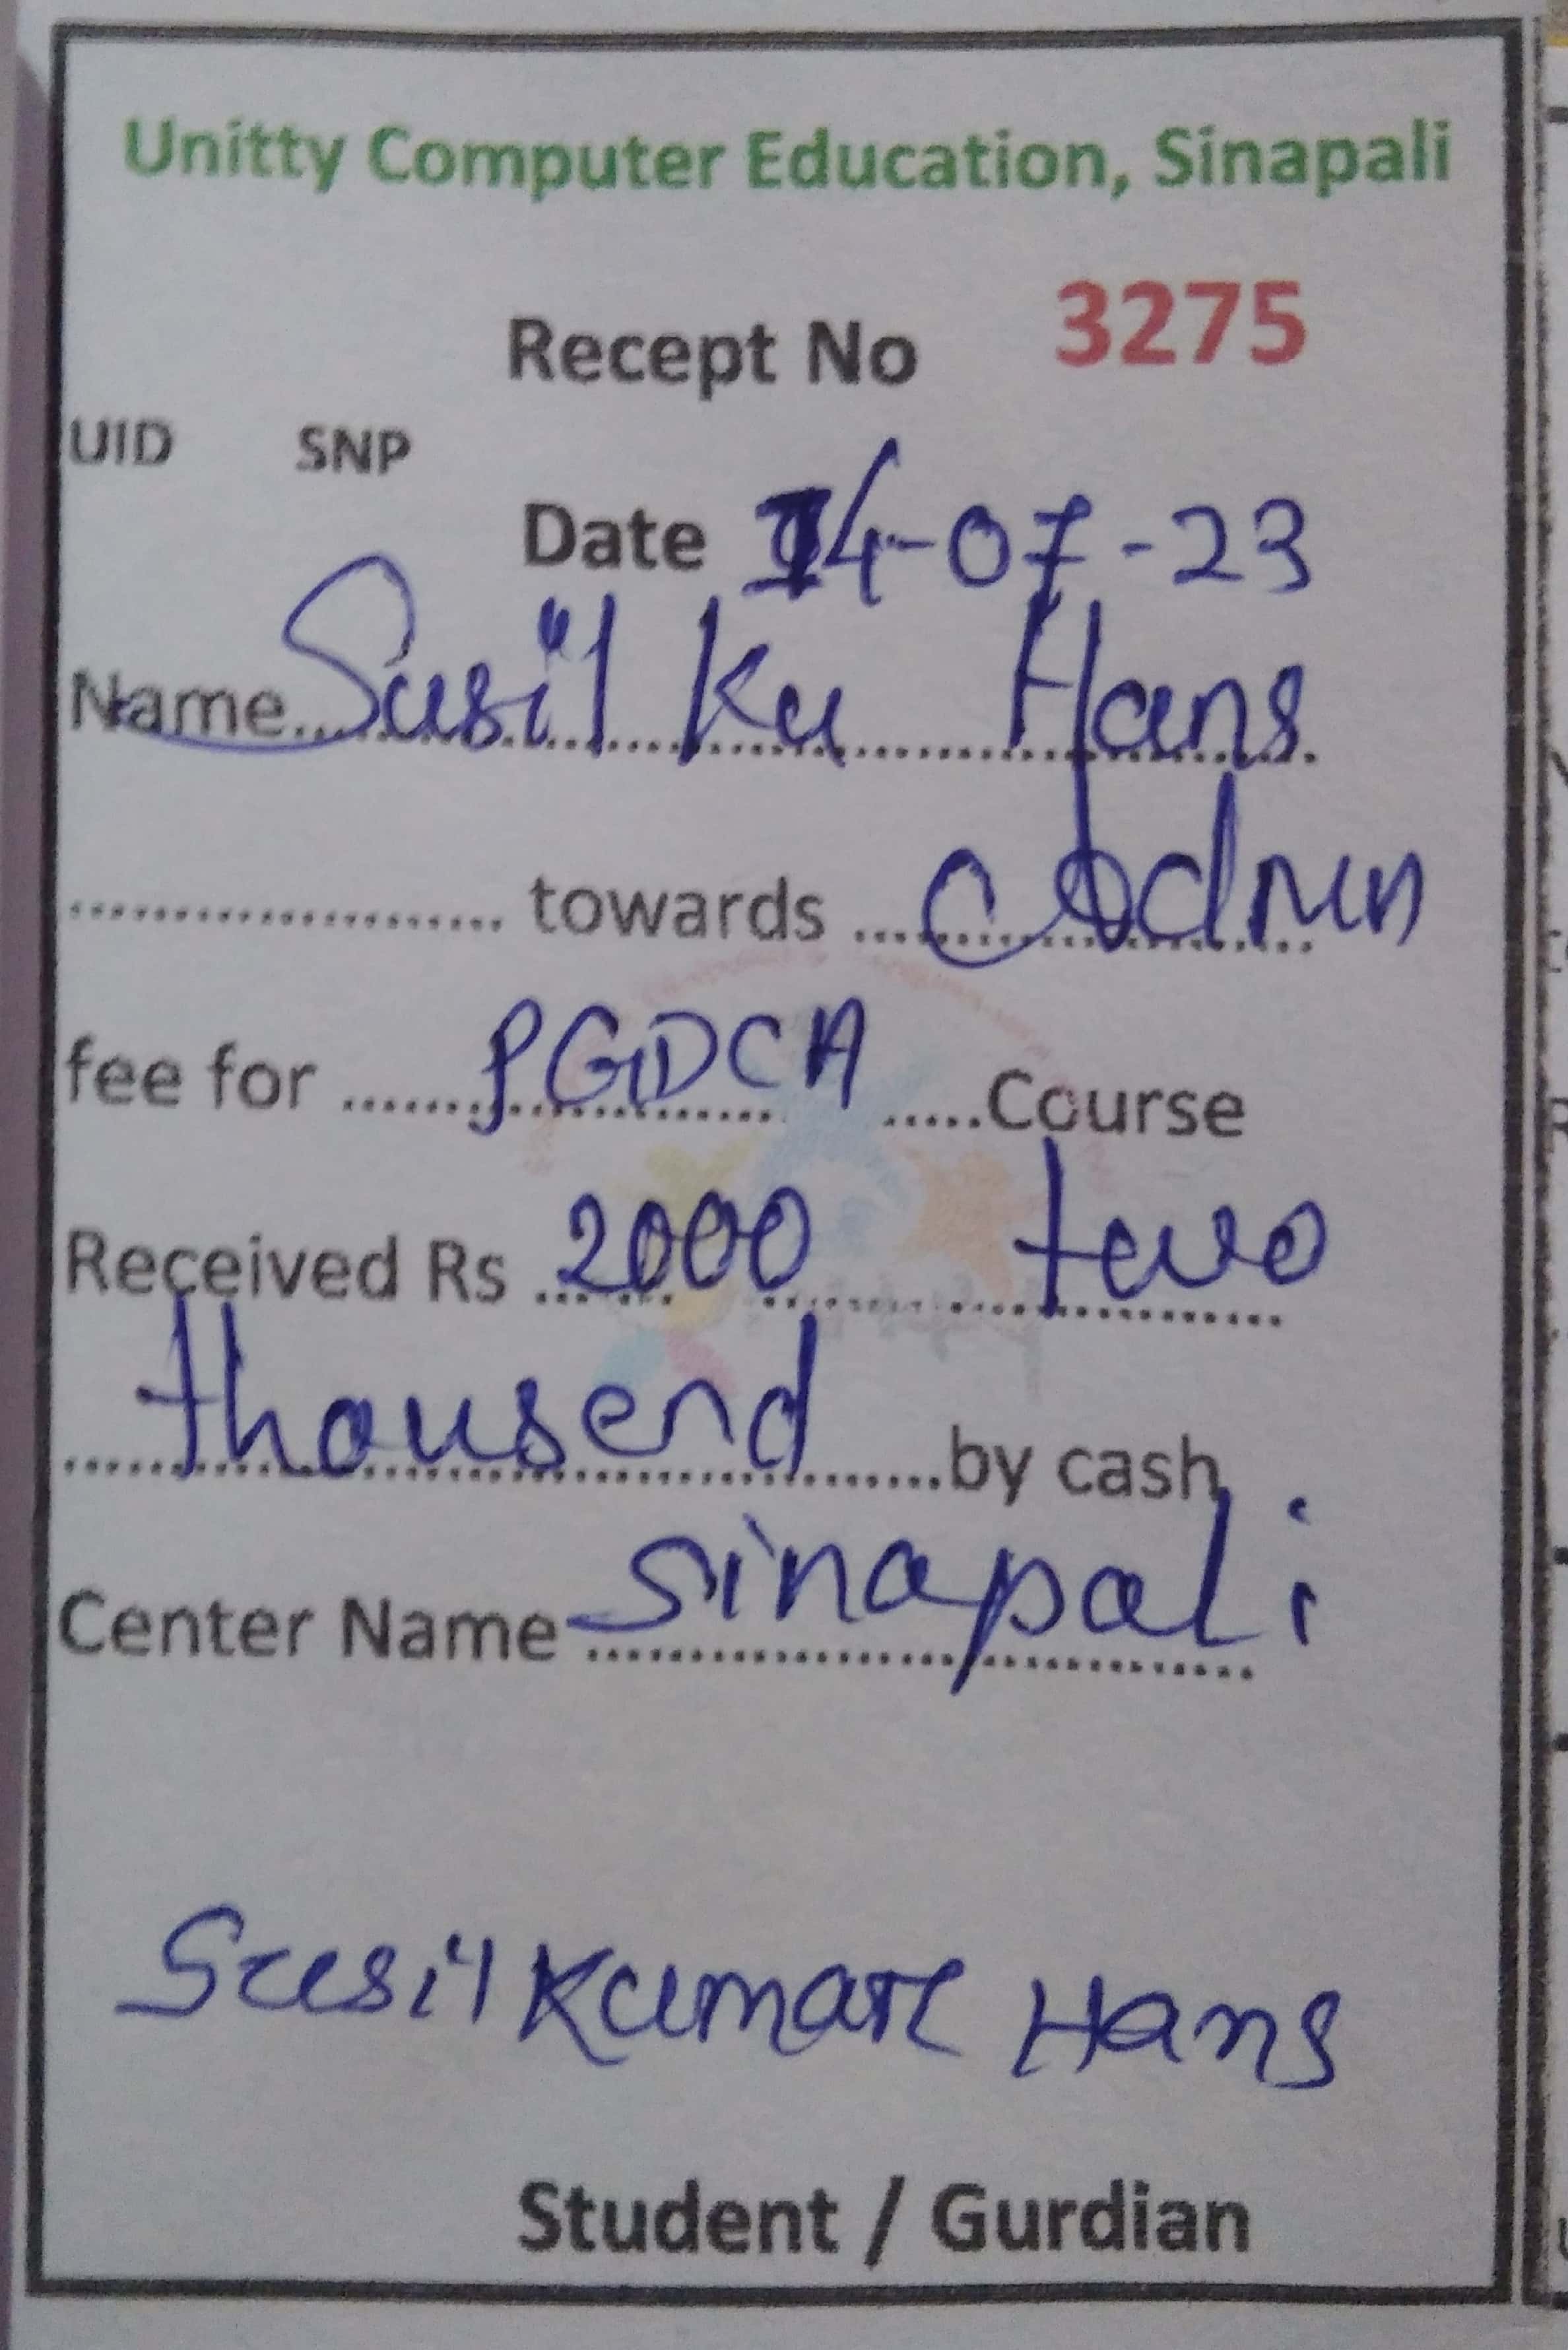 Unitty Computer Education, Sinapali
Recept No 3275
UID SNP
Date 14-07-23
Name...Susil Ku Hans
.................... towards ... Admn
fee for ......PGDCA.....Course
Received Rs ...2000 two
thousend.....by cash
Center Name sinapali
Susil Kumar Hans
Student / Gurdian